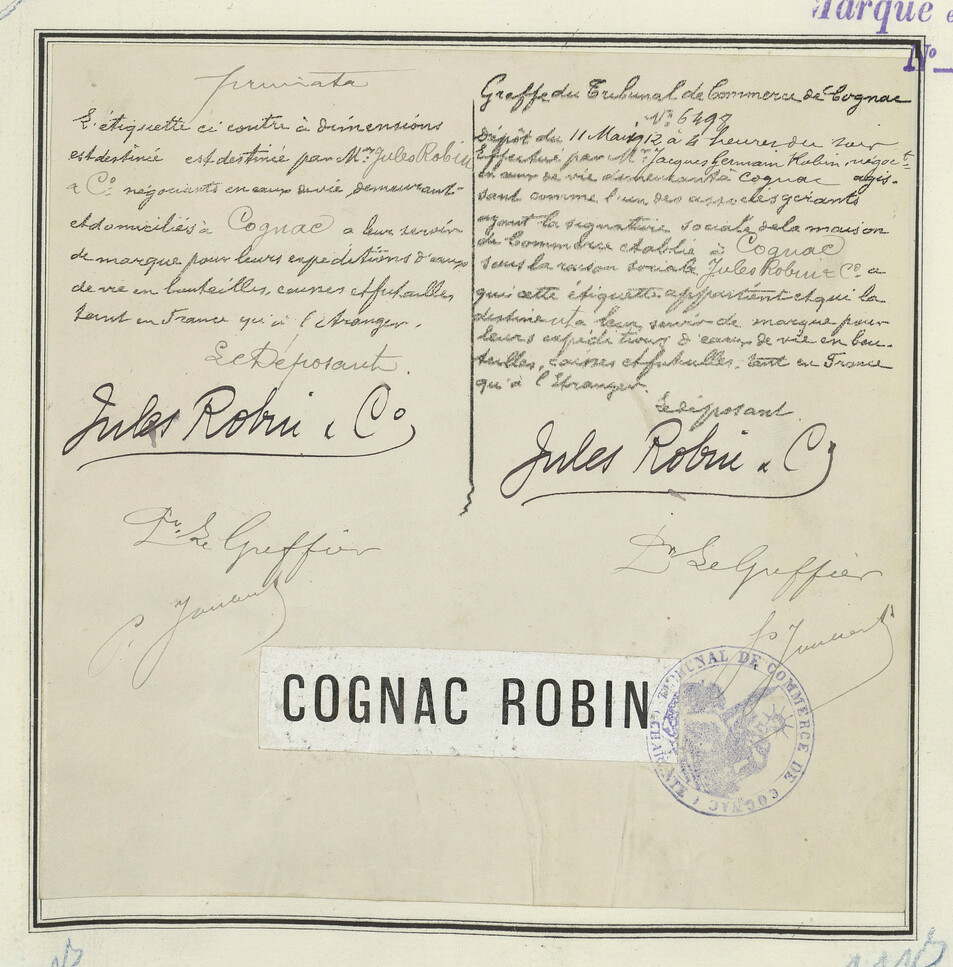 Marque
N°
L'étiquette ci contre à dimensions
est destinée est destinée par Mrs Jules Robin
& Co négociants en eaux de vie demeurant
et domiciliés à Cognac a leur servir
de marque pour leurs expéditions d'eaux
de vie en bouteilles, caisses et futailles
tant en France qu'à l'étranger.
Le Déposant.
Jules Robin & Co
Pr. Le Greffier
Greffe du Tribunal de Commerce de Cognac
N° 6498
Dépôt du 11 1912 à 4 heures du soir
Effectué par Mr Jacques Germain Robin négoct
en eaux de vie demeurant à Cognac agis-
sant comme l'un des associés gérants
ayant la signature sociale de la maison
de Commerce établie à Cognac
sous la raison sociale Jules Robin & Co a
qui cette étiquette appartient et qui la
destine a leur servir de marque pour
leurs expéditions d'eaux de vie en bou-
teilles, caisses et futailles, tant en France
qu'à l'étranger.
Le déposant
Jules Robin & C
Pr Le Greffier
COGNAC ROBIN
TRIBUNAL DE COMMERCE DE COGNAC